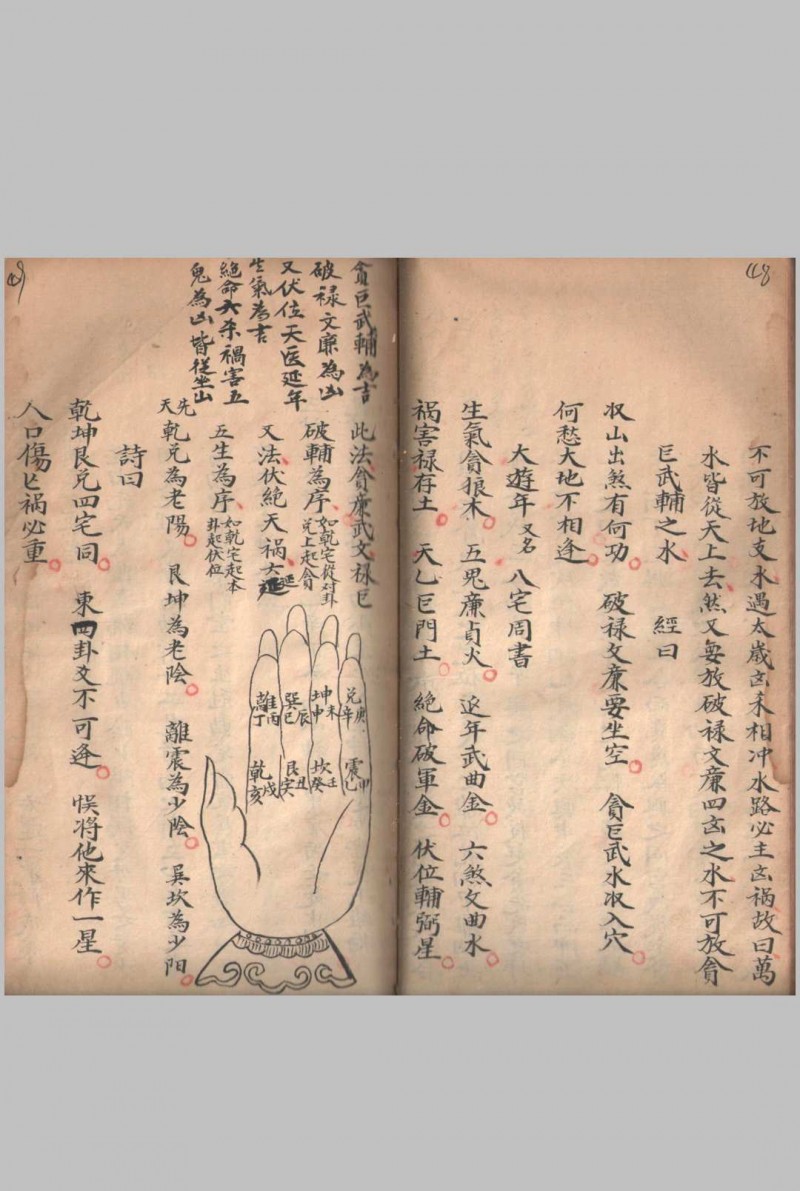 48
不可放地支水遇太歲凶禾相冲水路必主凶禍故曰萬
水皆從天上去然又每放破禄文廉四凶之水不可放貪
巨武輔之水　經曰
収山出煞有何功　破禄文廉要坐空　貪巨武水収入穴
何愁大地不相逢
大遊年 又名 八宅周書
生氣貪狼木　五鬼廉貞火　延年武曲金　六煞文曲水
禍害禄存土　天乙巨門土　絶命破軍金　伏位輔弼星
49
貪巨武輔為吉
破禄文廉為凶
又伏位天医延年
生氣為吉
絶命六杀禍害五
鬼為凶皆從坐山
此法貪廉武文禄巨
破輔為序 如乾宅從对卦
兑上起貪
又法伏絶天禍六延
五生為序 如乾宅起本
卦起伏位
先天
乾兑為老陽　艮坤為老陰　離震為少陰　巽坎為少阳
詩曰
乾坤艮兑四宅同　東四卦爻不可逢　悮将他來作一星
人口傷亡禍必重
兑 庚辛
坤 未申
巽 辰巳
離 丙丁
震 卯乙
坎 壬癸
艮 丑寅
乾 戌亥